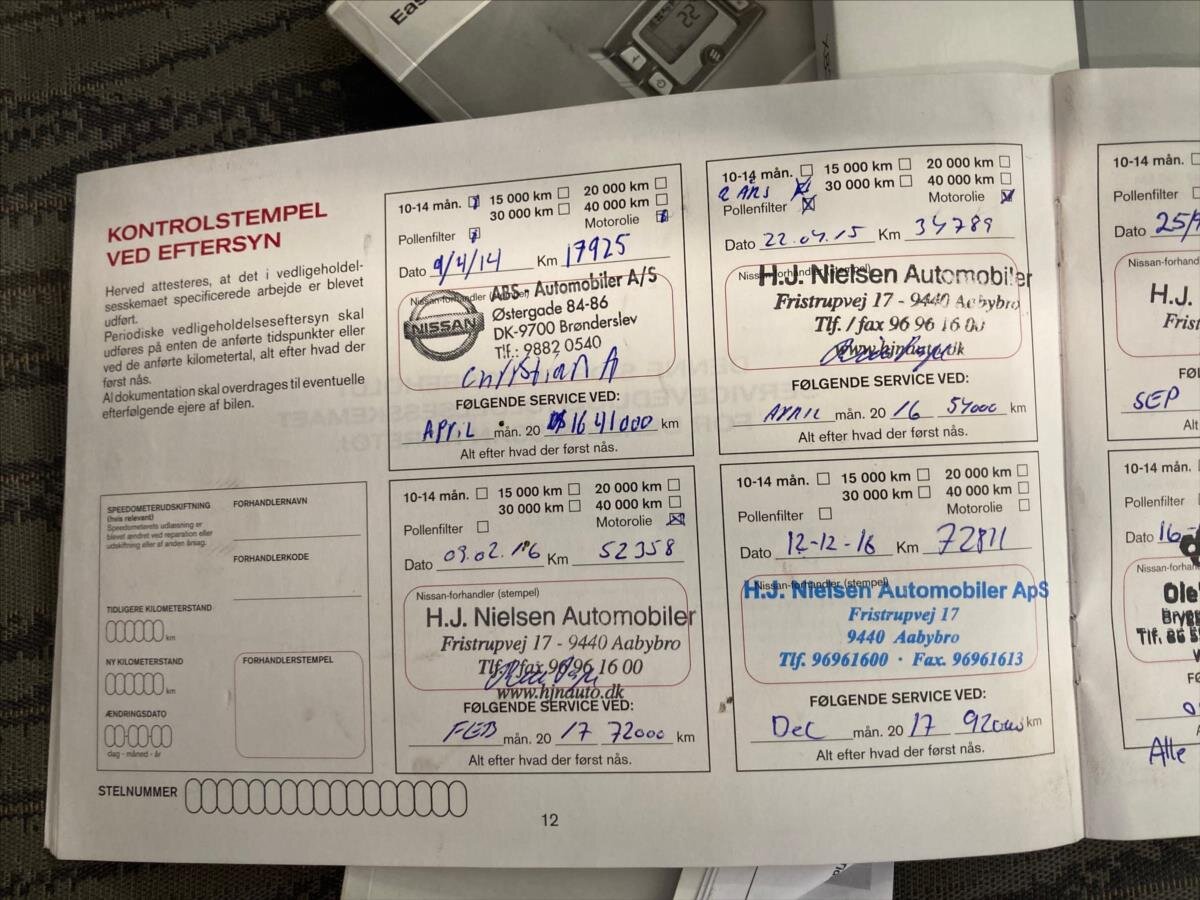 Eas
22
KONTROLSTEMPEL
VED EFTERSYN
Herved attesteres, at det i vedligeholdel-
sesskemaet specificerede arbejde er blevet
udført.
Periodiske vedligeholdelseseftersyn skal
udføres på enten de anførte tidspunkter eller
ved de anførte kilometertal, alt efter hvad der
først nås.
Al dokumentation skal overdrages til eventuelle
efterfølgende ejere af bilen.
SPEEDOMETERUDSKIFTNING
(hvis relevant)
Speedometerets udlæsning er
blevet ændret ved reparation eller
udskiftning eller af anden årsag.
FORHANDLERNAVN
FORHANDLERKODE
TIDLIGERE KILOMETERSTAND
km
NY KILOMETERSTAND
km
ÆNDRINGSDATO
dag - måned - år
FORHANDLERSTEMPEL
STELNUMMER
10-14 mån. 15 000 km 20 000 km
30 000 km 40 000 km
Pollenfilter Motorolie
Dato 9/4/14 Km 17925
Nissan-forhandler
ABS - Automobiler A/S
NISSAN
Østergade 84-86
DK-9700 Brønderslev
Tlf.: 9882 0540
Christian A
FØLGENDE SERVICE VED:
APRIL mån. 20 16 41000 km
Alt efter hvad der først nås.
10-14 mån. 15 000 km 20 000 km
2 ÅRS 30 000 km 40 000 km
Pollenfilter Motorolie
Dato 22.04.15 Km 34789
H.J. Nielsen Automobiler
Fristrupvej 17 - 9440 Aabybro
Tlf. / fax 96 96 16 00
www.hjnauto.dk
FØLGENDE SERVICE VED:
APRIL mån. 20 16 54000 km
Alt efter hvad der først nås.
10-14 mån. 15 000 km 20 000 km
30 000 km 40 000 km
Pollenfilter Motorolie
Dato 09.02.16 Km 52358
Nissan-forhandler (stempel)
H.J. Nielsen Automobiler
Fristrupvej 17 - 9440 Aabybro
Tlf. / fax 96 96 16 00
www.hjnauto.dk
FØLGENDE SERVICE VED:
FEB mån. 20 17 72000 km
Alt efter hvad der først nås.
10-14 mån. 15 000 km 20 000 km
30 000 km 40 000 km
Pollenfilter Motorolie
Dato 12-12-16 Km 72811
Nissan-forhandler (stempel)
H.J. Nielsen Automobiler ApS
Fristrupvej 17
9440 Aabybro
Tlf. 96961600 · Fax. 96961613
FØLGENDE SERVICE VED:
Dec mån. 20 17 92000 km
Alt efter hvad der først nås.
12
10-14 mån.
Pollenfilter
Dato 25/
Nissan-forhandler
H.J.
Frist
FØLGENDE
SEP
Alt
10-14 mån.
Pollenfilter
Dato 16-
Nissan-forhand
Ole
Brygg
Tlf. 86 5
FØ
Alle